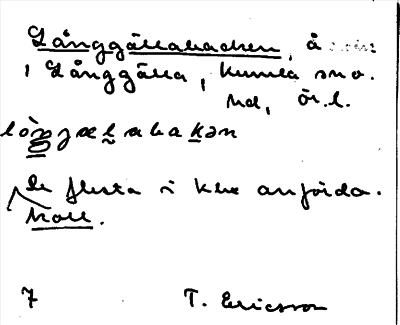 Långgällabacken, å
i Långgälla, Kumla sn o.
hd, Ör. l.
lòŋgælabakən
De flesta i kke anförda.
Koll.
7 T. Ericsson